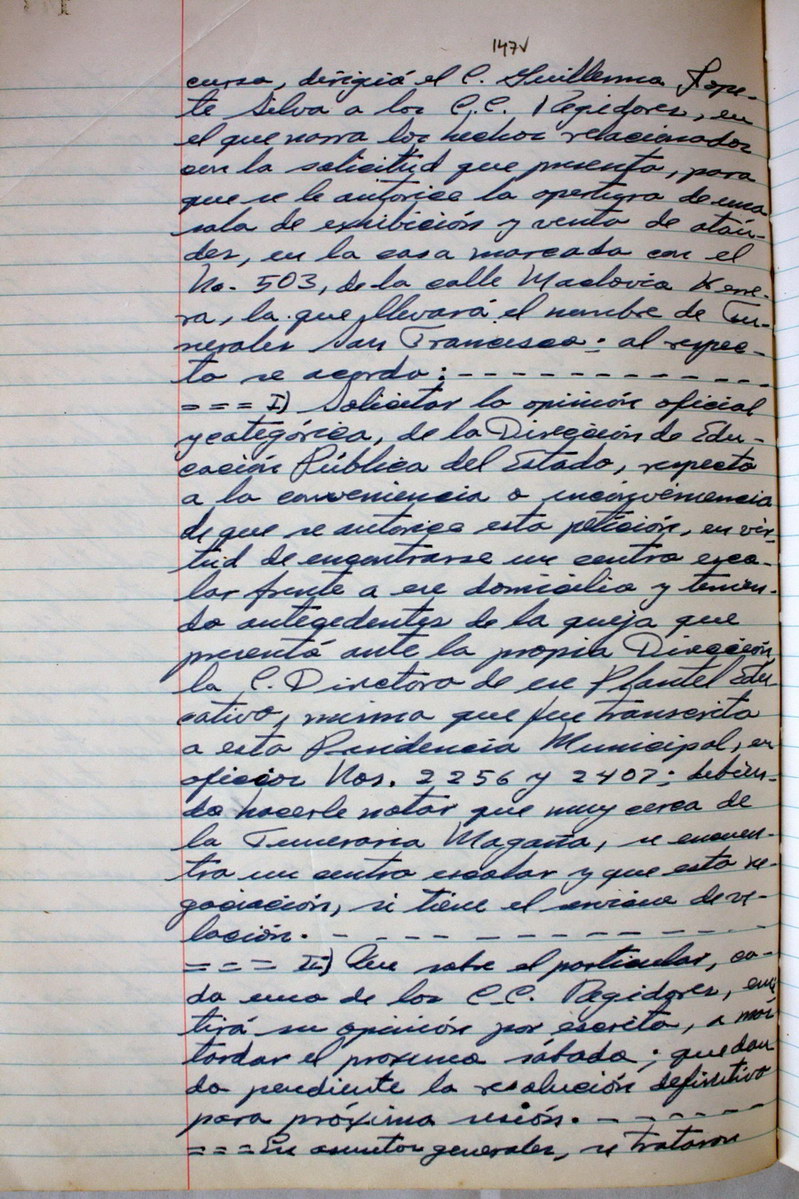 147v
curso, dirigió el C. Guillermo Tope-
te Silva a los C.C. Regidores, en
el que narra los hechos relacionados
con la solicitud que presenta, para
que se le autorice la apertura de una
sala de exhibición y venta de ataú-
des, en la casa marcada con el
No. 503, de la calle Maclovio Herre-
ra, la que llevará el nombre de Fu-
nerales San Francisco; al respec-
to se acordo:- - - - - - - - - - - - -
= = = I) Solicitar la opinión oficial
y categórica, de la Dirección de Edu-
cación Pública del Estado, respecto
a la conveniencia o inconveniencia
de que se autorice esta petición, en vir-
tud de encontrarse un centro esco-
lar frente a ese domicilio y tenien-
do antecedentes de la queja que
presentó ante la propia Dirección
la C. Directora de ese Plantel Edu
cativo, misma que fue transcrita
a esta Presidencia Municipal, en
oficios Nos. 2256 y 2407; debien-
do hacerle notar que muy cerca de
la Funeraria Magaña, se encuen-
tra un centro escolar y que esta ne-
gociación, si tiene el servicio de ve-
lación. - - - - - - - - - - -
= = = II) Que sobre el particular, ca-
da uno de los C.C. Regidores, emi
tirá su opinión por escrito, a más
tardar el proximo sábado; quedan
do pendiente la resolución definitiva
para próxima sesión. - - - - - -
= = = En asuntos generales, se trataron